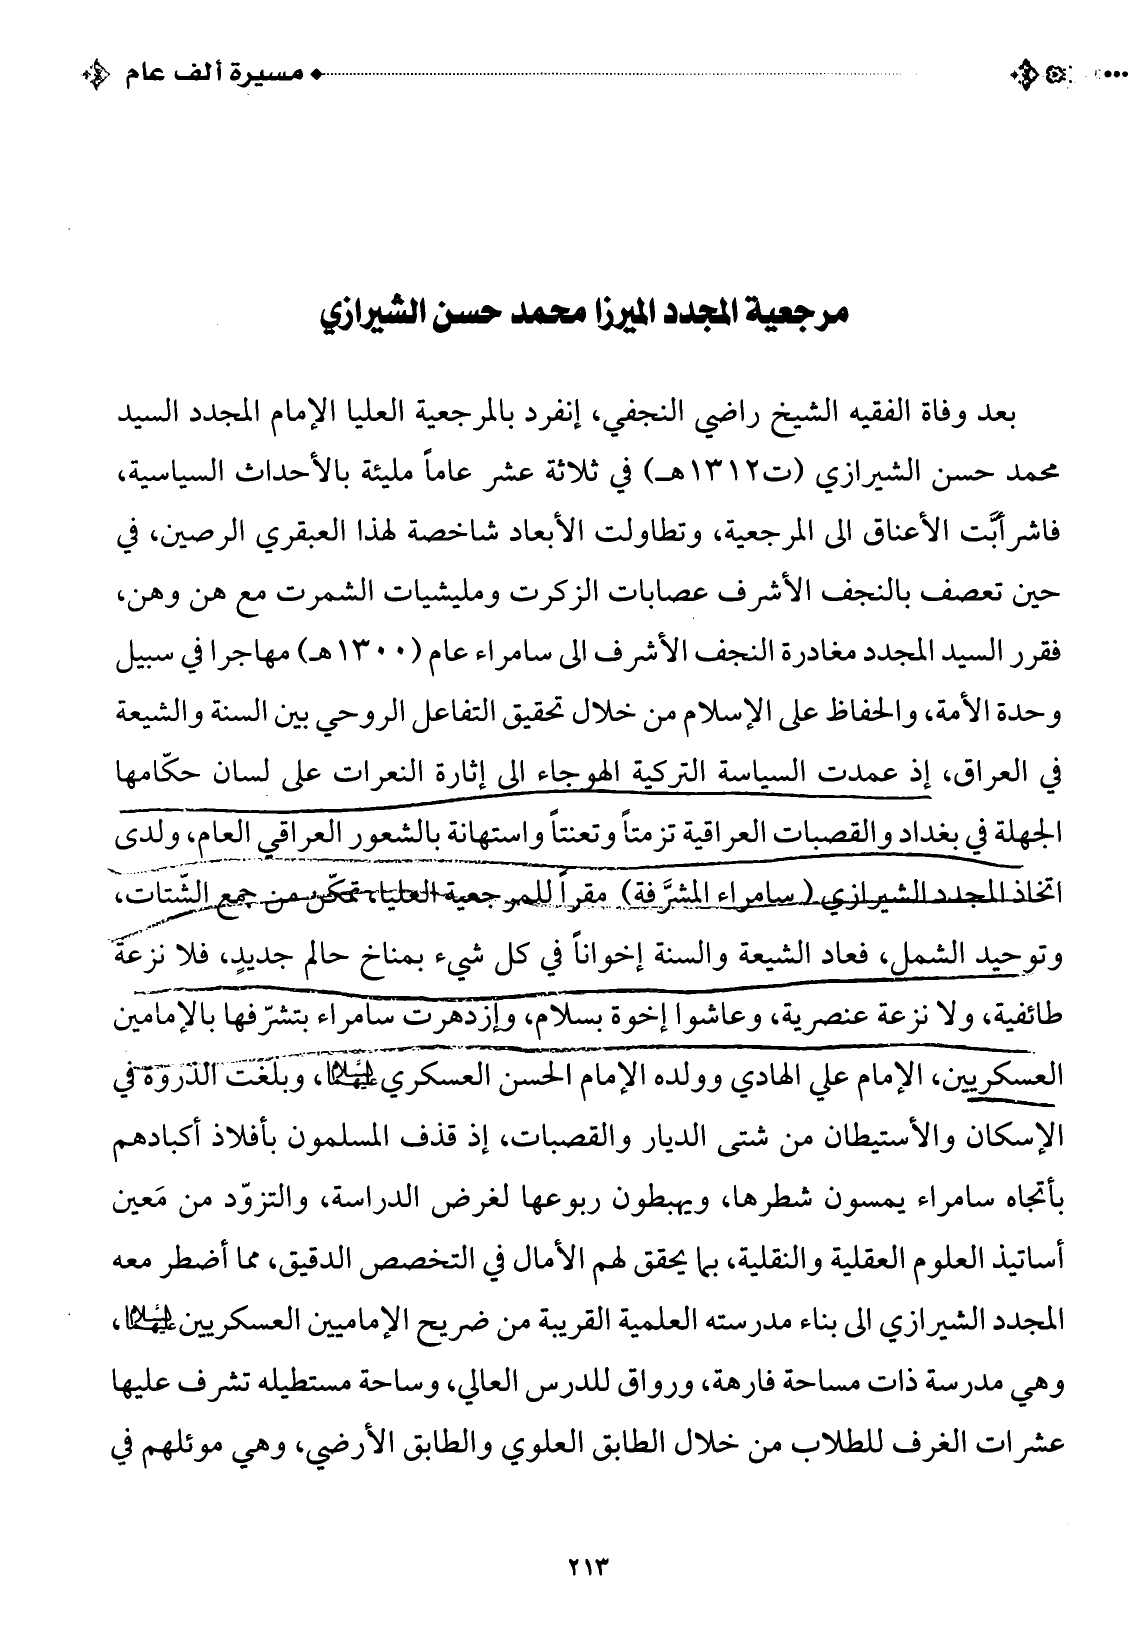 مسيرة ألف عام
مرجعية المجدد الميرزا محمد حسن الشيرازي
بعد وفاة الفقيه الشيخ راضي النجفي، إنفرد بالمرجعية العليا الإمام المجدد السيد
محمد حسن الشيرازي (ت١٣١٢هـ) في ثلاثة عشر عاماً مليئة بالأحداث السياسية،
فاشرأبَّت الأعناق الى المرجعية، وتطاولت الأبعاد شاخصة لهذا العبقري الرصين، في
حين تعصف بالنجف الأشرف عصابات الزكرت ومليشيات الشمرت مع هن وهن،
فقرر السيد المجدد مغادرة النجف الأشرف الى سامراء عام (١٣٠٠هـ) مهاجرا في سبيل
وحدة الأمة، والحفاظ على الإسلام من خلال تحقيق التفاعل الروحي بين السنة والشيعة
في العراق، إذ عمدت السياسة التركية الهوجاء الى إثارة النعرات على لسان حكّامها
الجهلة في بغداد والقصبات العراقية تزمتاً وتعنتاً واستهانة بالشعور العراقي العام، ولدى
اتخاذ المجدد الشيرازي (سامراء المشرَّفة) مقراً للمرجعية العليا، تمكّن من جمع الشّتات،
وتوحيد الشمل، فعاد الشيعة والسنة إخواناً في كل شيء بمناخ حالم جديدٍ، فلا نزعة
طائفية، ولا نزعة عنصرية، وعاشوا إخوة بسلام، وإزدهرت سامراء بتشرّفها بالإمامين
العسكريين، الإمام علي الهادي وولده الإمام الحسن العسكري عليهما السلام، وبلغت الذروة في
الإسكان والأستيطان من شتى الديار والقصبات، إذ قذف المسلمون بأفلاذ أكبادهم
بأتجاه سامراء يمسون شطرها، ويهبطون ربوعها لغرض الدراسة، والتزوّد من مَعين
أساتيذ العلوم العقلية والنقلية، بما يحقق لهم الأمال في التخصص الدقيق، مما أضطر معه
المجدد الشيرازي الى بناء مدرسته العلمية القريبة من ضريح الإماميين العسكريين عليهما السلام،
وهي مدرسة ذات مساحة فارهة، ورواق للدرس العالي، وساحة مستطيله تشرف عليها
عشرات الغرف للطلاب من خلال الطابق العلوي والطابق الأرضي، وهي موئلهم في
٢١٣